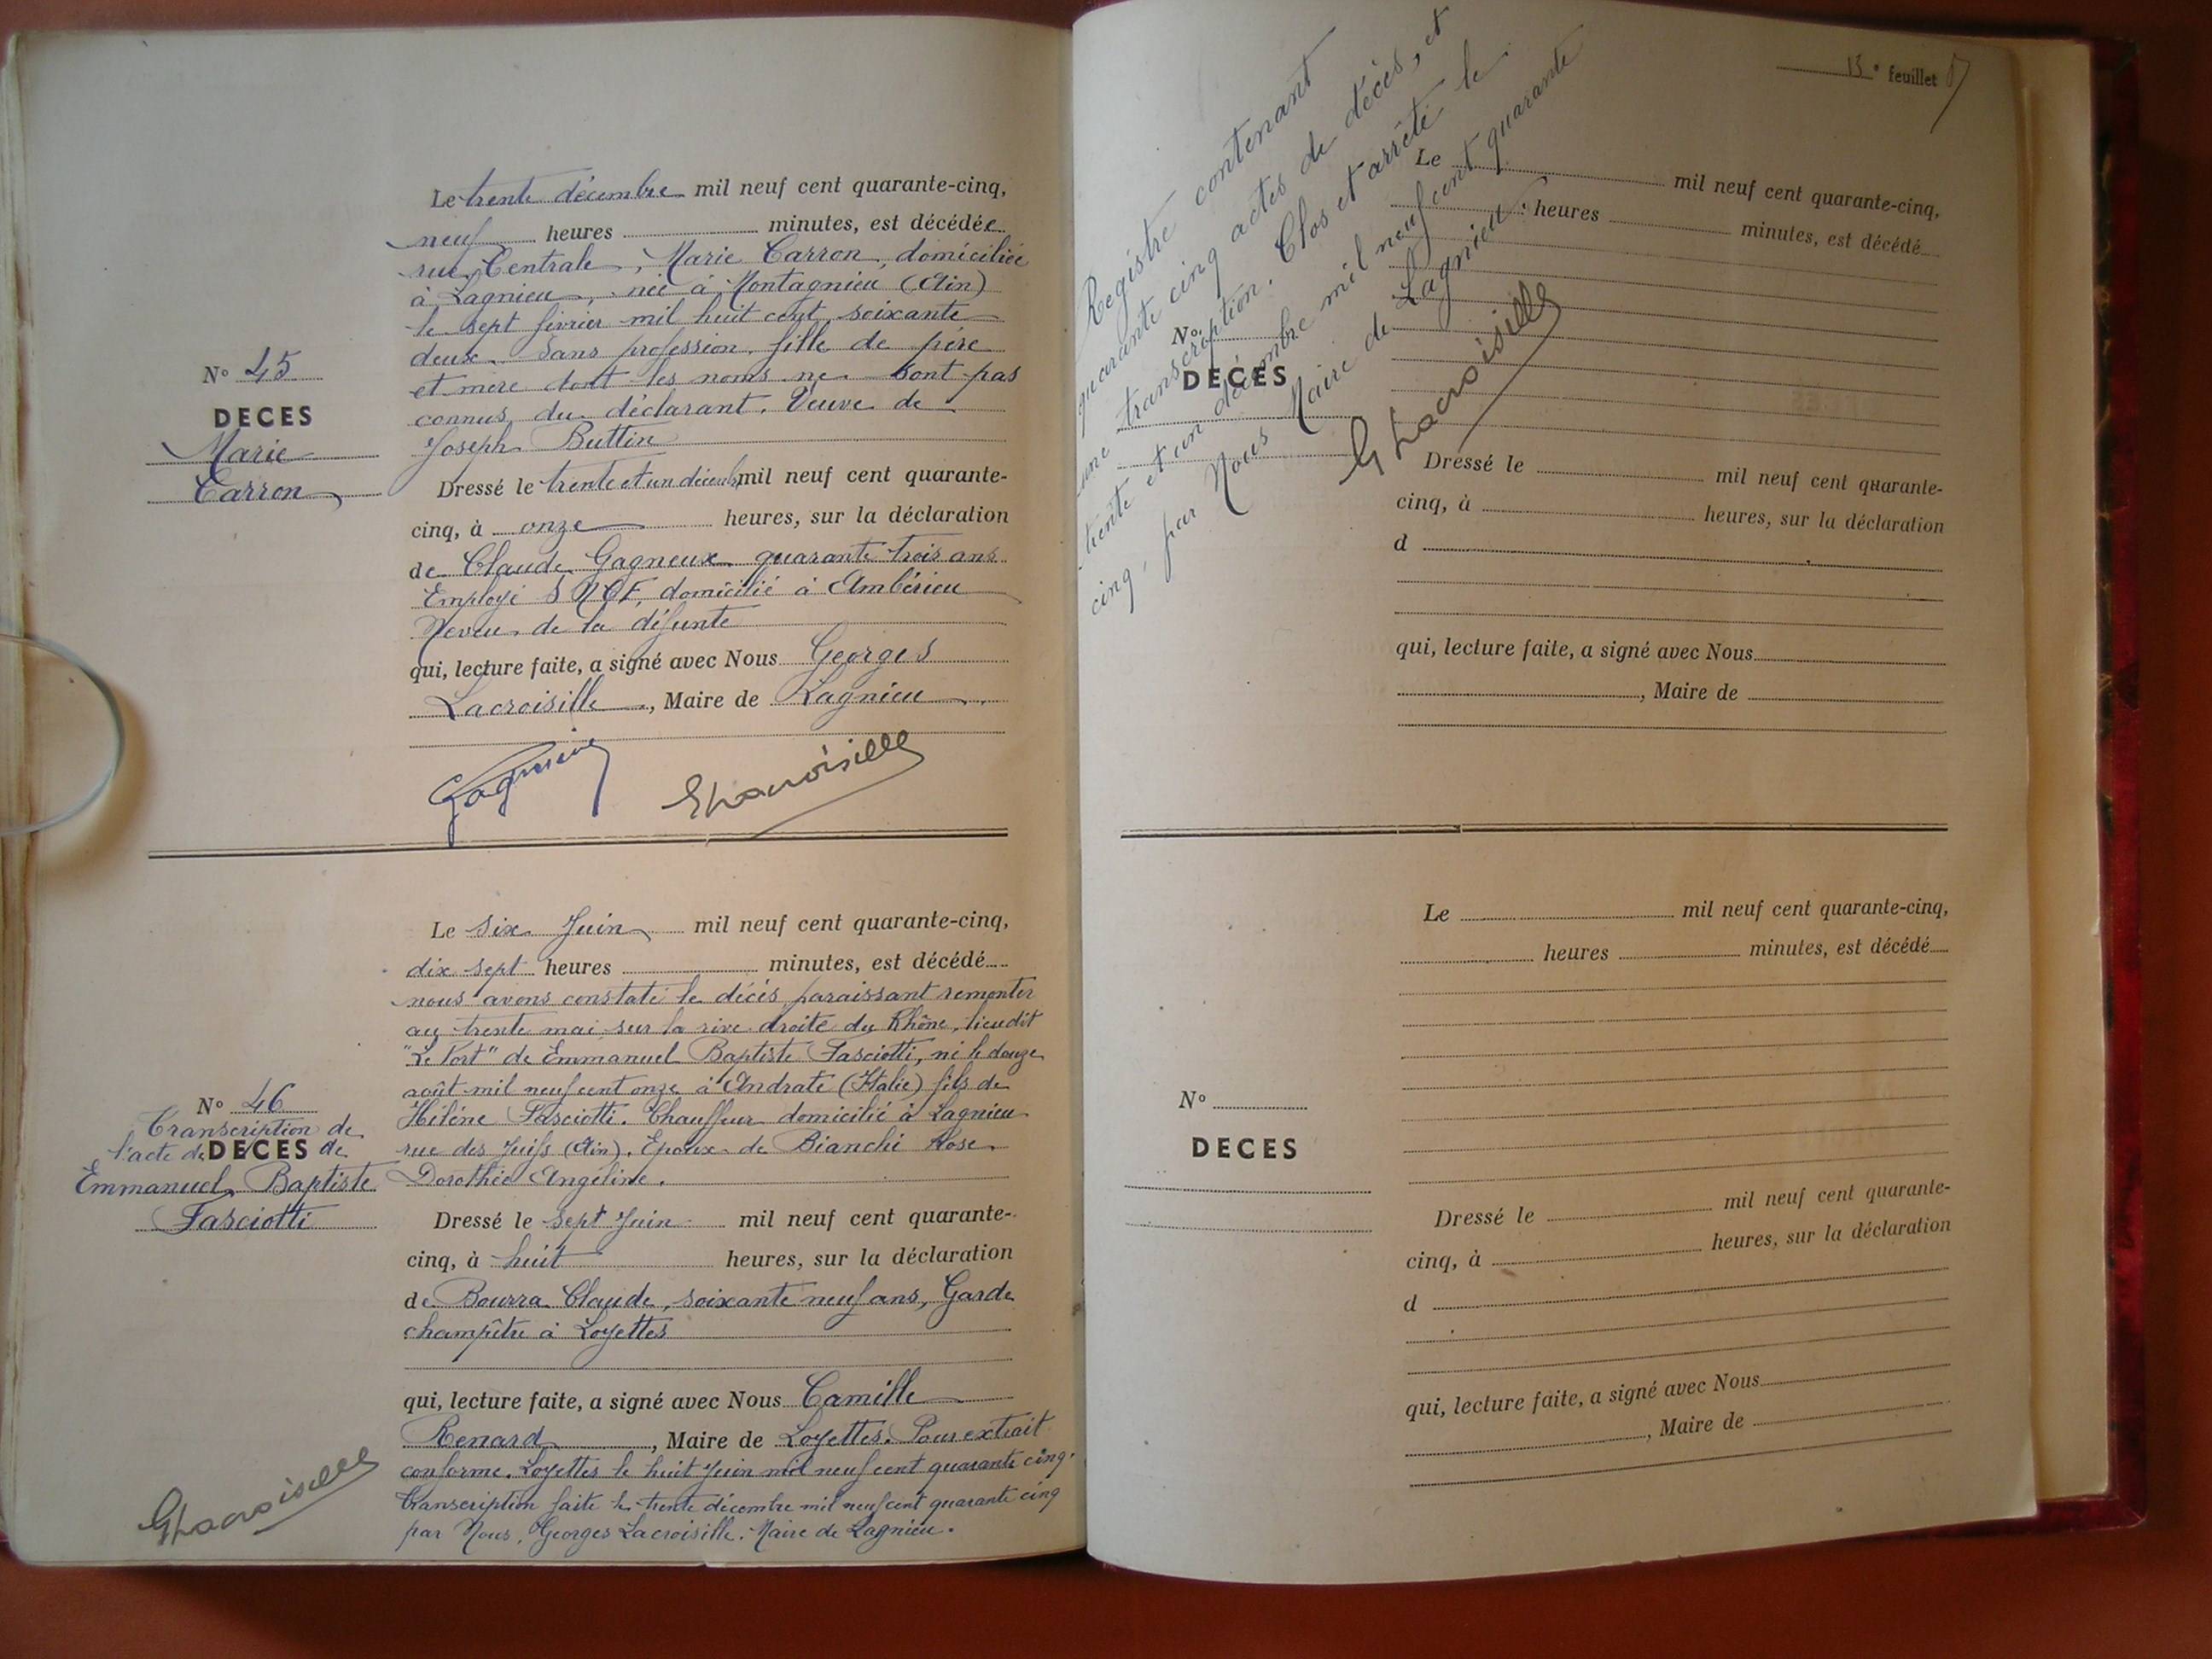 Le trente décembre mil neuf cent quarante-cinq,
neuf heures minutes, est décédée
rue Centrale, Marie Carron, domiciliée
à Lagnieu, née à Montagnieu (Ain)
le sept février mil huit cent soixante
deux. Sans profession, fille de père
et mère dont les noms ne sont pas
connus du déclarant. Veuve de
Joseph Buttin
N° 45
DECES
Marie
Carron
Dressé le trente et un décemb mil neuf cent quarante-
cinq, à onze heures, sur la déclaration
de Claude Gagneux quarante trois ans
Employé SNCF, domicilié à Ambérieu
Neveu de la défunte
qui, lecture faite, a signé avec Nous Georges
Lacroisille, Maire de Lagnieu.
Gagneux
GLacroisille
Le six Juin mil neuf cent quarante-cinq,
dix sept heures minutes, est décédé
nous avons constaté le décès paraissant remonter
au trente mai sur la rive droite du Rhône, lieudit
"Le Port" de Emmanuel Baptiste Fasciotti, né le douze
août mil neuf cent onze à Andrate (Italie) fils de
Hélène Fasciotti. Chauffeur domicilié à Lagnieu
rue des Juifs (Ain). Epoux de Bianchi Rose
Dorothée Angéline.
N° 46
Transcription de
l'acte de DECES de
Emmanuel Baptiste
Fasciotti
Dressé le sept Juin mil neuf cent quarante-
cinq, à huit heures, sur la déclaration
de Bourra Claude, soixante neuf ans, Garde
champêtre à Loyettes
qui, lecture faite, a signé avec Nous Camille
Renard, Maire de Loyettes. Pour extrait
conforme. Loyettes le huit Juin mil neuf cent quarante cinq.
Transcription faite le trente décembre mil neuf cent quarante cinq
par Nous, Georges Lacroisille. Maire de Lagnieu.
GLacroisille
13e feuillet
Registre contenant
quarante cinq actes de décès, et
une transcription. Clos et arrêté le
trente et un décembre mil neuf cent quarante
cinq, par Nous Maire de Lagnieu.
G Lacroisille
Le mil neuf cent quarante-cinq,
heures minutes, est décédé
N°
DECES
Dressé le mil neuf cent quarante-
cinq, à heures, sur la déclaration
d
qui, lecture faite, a signé avec Nous
, Maire de
Le mil neuf cent quarante-cinq,
heures minutes, est décédé
N°
DECES
Dressé le mil neuf cent quarante-
cinq, à heures, sur la déclaration
d
qui, lecture faite, a signé avec Nous
, Maire de